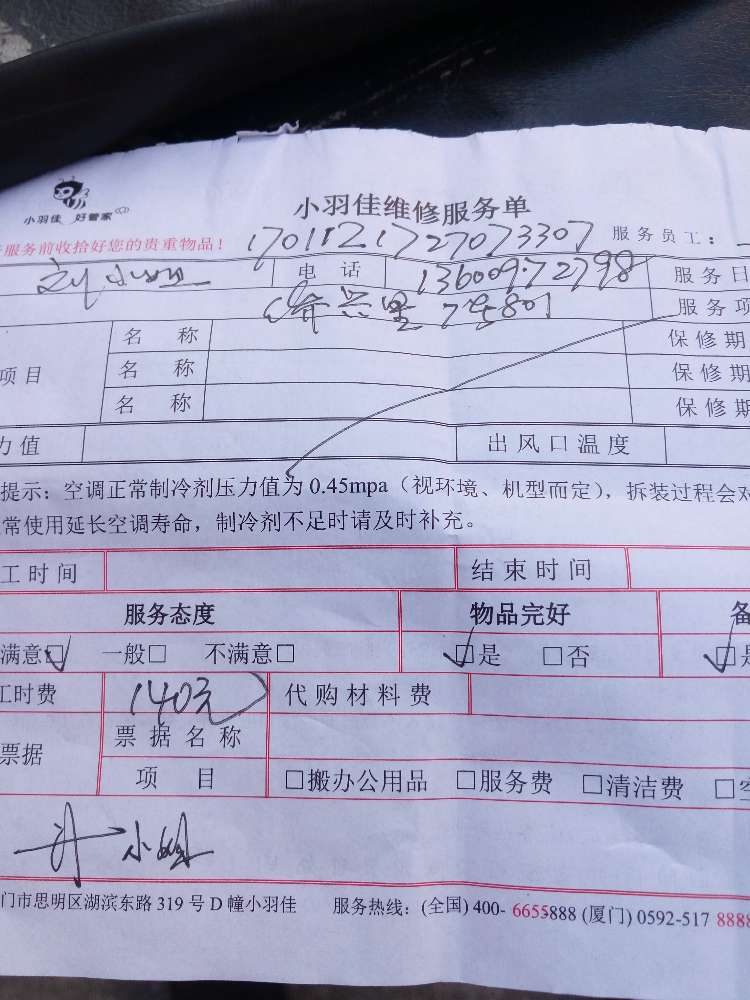 小羽佳 好管家
小羽佳维修服务单
服务前收拾好您的贵重物品！ 1701121727073307 服务员工：
电 话 13600972798 服务日
兴里 801 服务项
名 称 保修期
项目 名 称 保修期
名 称 保修期
力值 出风口温度
提示：空调正常制冷剂压力值为 0.45mpa（视环境、机型而定），拆装过程会对
常使用延长空调寿命，制冷剂不足时请及时补充。
工时间 结束时间
服务态度 物品完好 备
满意☑ 一般□ 不满意□ ☑是 □否 ☑是
工时费 140元 代购材料费
票据 票据名称
项 目 □搬办公用品 □服务费 □清洁费 □空
小姐
门市思明区湖滨东路 319 号 D 幢小羽佳 服务热线：(全国) 400- 6655888 (厦门) 0592-517 8888